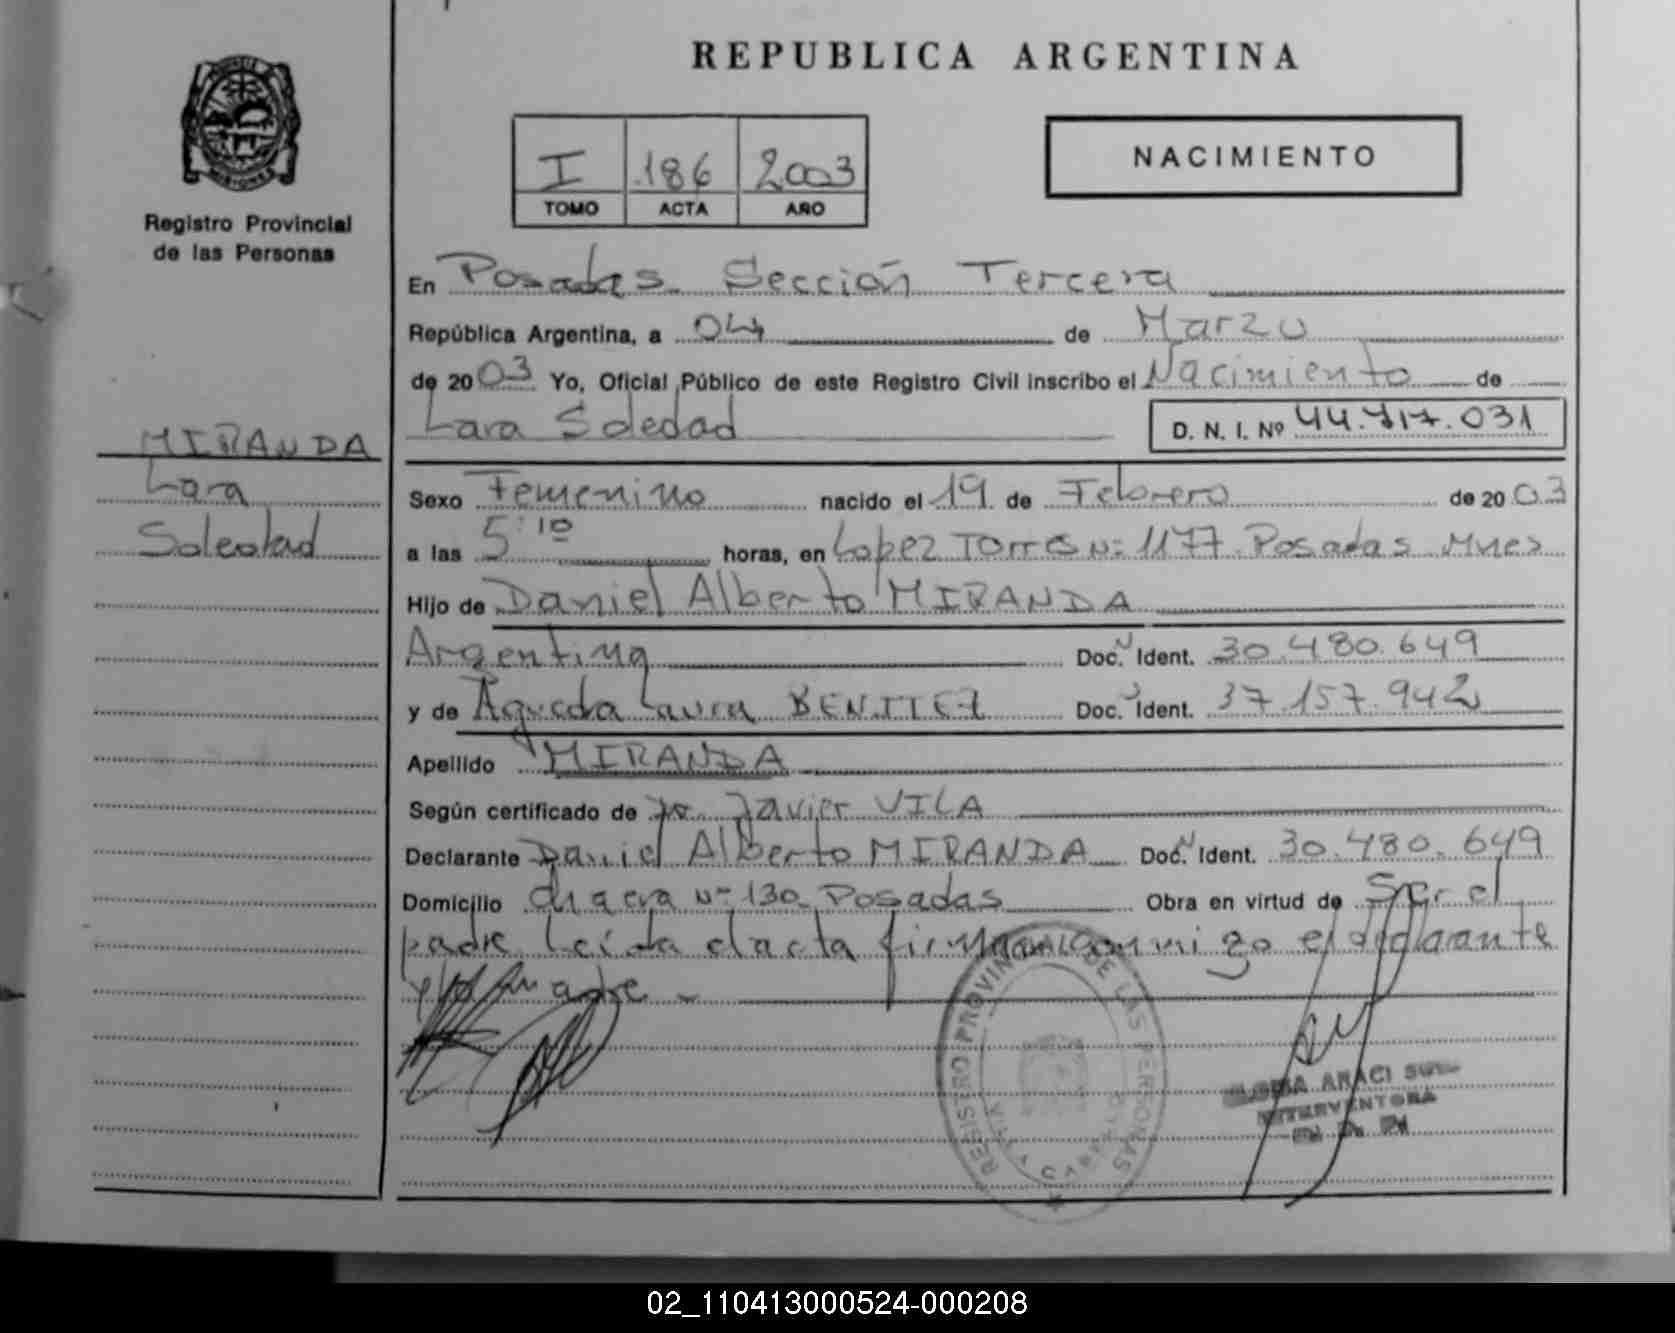 REPUBLICA ARGENTINA
MISIONES
Registro Provincial
de las Personas
I 186 2003
TOMO ACTA AÑO
NACIMIENTO
En Posadas Sección Tercera
República Argentina, a 04 de Marzo
de 2003 Yo, Oficial Público de este Registro Civil inscribo el Nacimiento de
Lara Soledad D. N. I. Nº 44.717.031
MIRANDA
Lara
Soledad
Sexo Femenino nacido el 19 de Febrero de 2003
a las 5:10 horas, en Lopez Torres Nº 1177 Posadas Mnes
Hijo de Daniel Alberto MIRANDA
Argentina Doc. Ident. 30.480.649
y de Agueda Laura BENITEZ Doc. Ident. 37.157.942
Apellido MIRANDA
Según certificado de Dr. Javier VILA
Declarante Daniel Alberto MIRANDA Doc. Ident. 30.480.649
Domicilio Chacra Nº 130 Posadas Obra en virtud de Ser el
padre Leída el acta firman conmigo el declarante
y la madre.-
REGISTRO PROVINCIAL DE LAS PERSONAS
VILLA CABELLO
ARACI
INTERVENTORA
02_110413000524-000208